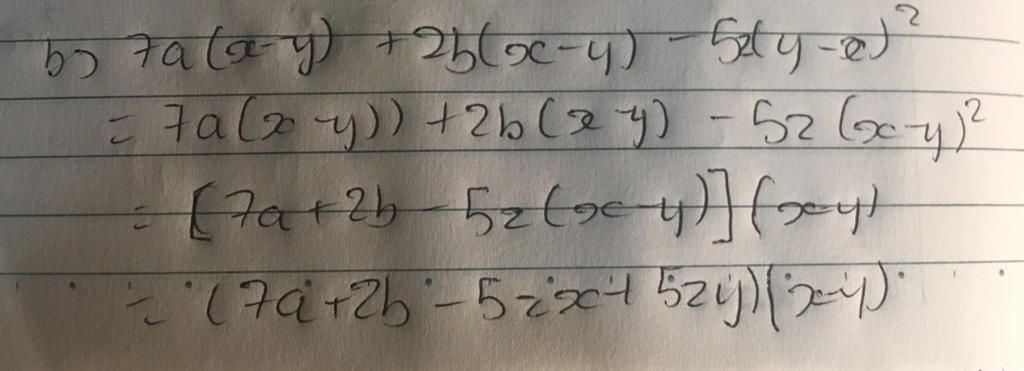 b) 7a(x-y) +2b(x-y) -5z(y-x)²
= 7a(x-y)) +2b(x-y) - 5z(x-y)²
= [7a+2b-5z(x-y)](x-y)
= (7a+2b-5zx+5zy)(x-y)